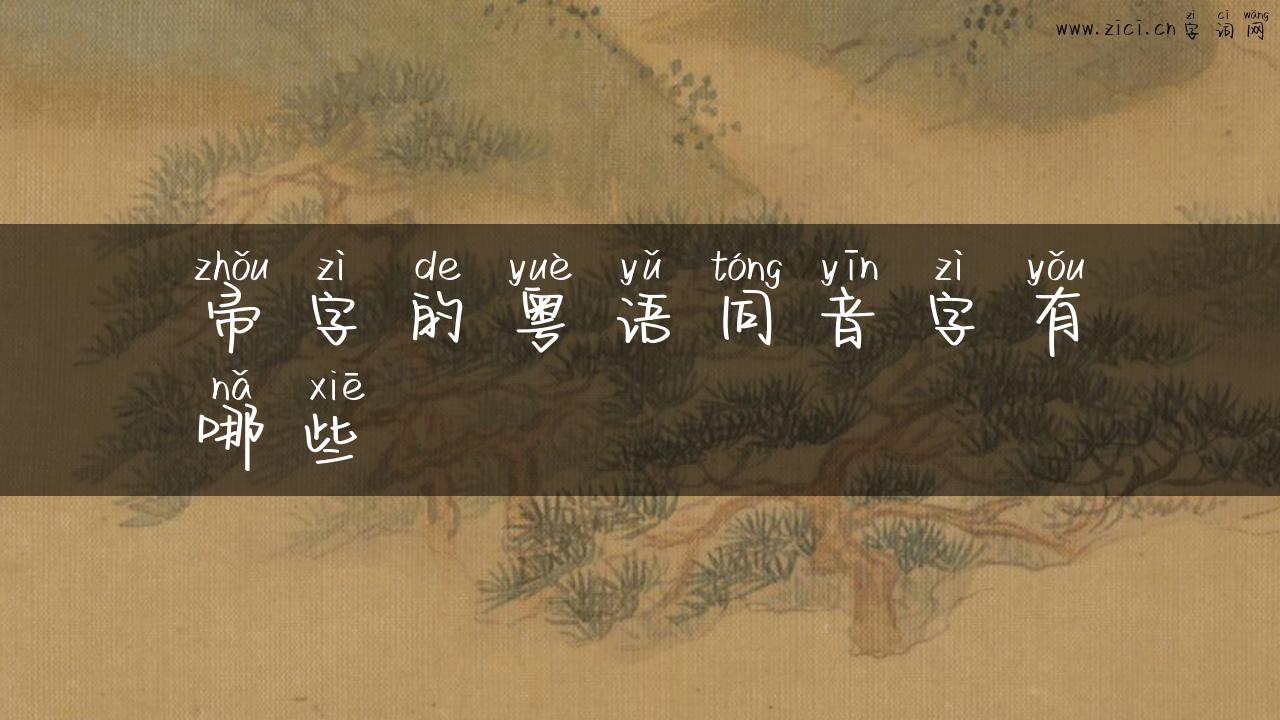 zì cí wǎng
www.zici.cn 字 词 网
zhǒu zì de yuè yǔ tóng yīn zì yǒu
帚 字 的 粤 语 同 音 字 有
nǎ xiē
哪 些